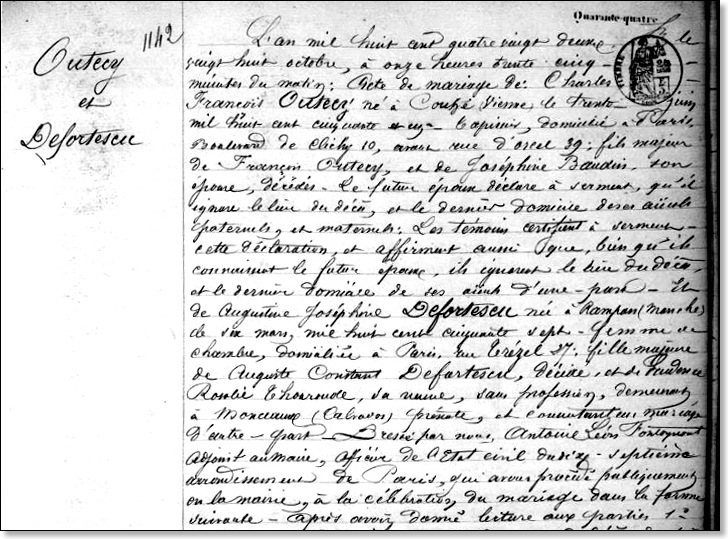 Quarante quatre
1142
Outecy
et
Defortescu
L'an mil huit cent quatre vingt deux, le
vingt huit octobre, à onze heures trente cinq
minutes du matin: Acte de mariage de: Charles
François Outecy né à Couhé Vienne le trente juin
mil huit cent cinquante et un Tapissier, domicilié à Paris
Boulevard de Clichy 10, avant rue d'orsel 39: fils majeur
de François Outecy, et de Joséphine Baudin son
épouse, décédés - Le futur époux déclare à serment, qu'il
ignore le lieu du décès, et le dernier domicile de ses aïeuls
paternels, et maternels: Les témoins certifient à serment
cette déclaration, et affirment aussi que, bien qu'ils
connaissent le futur époux, ils ignorent le lieu du décès,
et le dernier domicile de ses aïeuls d'une - part - Et
de Augustine Joséphine Defortescu née à Rampan (Manche)
le six mars, mil huit cent cinquante sept - femme de
chambre, domiciliée à Paris, rue Trézel 27: fille majeure
de Auguste Constant Defortescu, décédé, et de Prudence
Rosalie Thouroude, sa veuve, sans profession, demeurant
à Monceaux (Calvados) présente, et consentant au mariage
d'autre - part - Dressé par nous, Antoine Léon
adjoint au maire, officier de l'Etat civil du dix - septième
arrondissement de Paris, qui avons procédé publiquement
en la mairie, à la célébration du mariage dans la forme
suivante - Après avoir donné lecture aux parties 1°